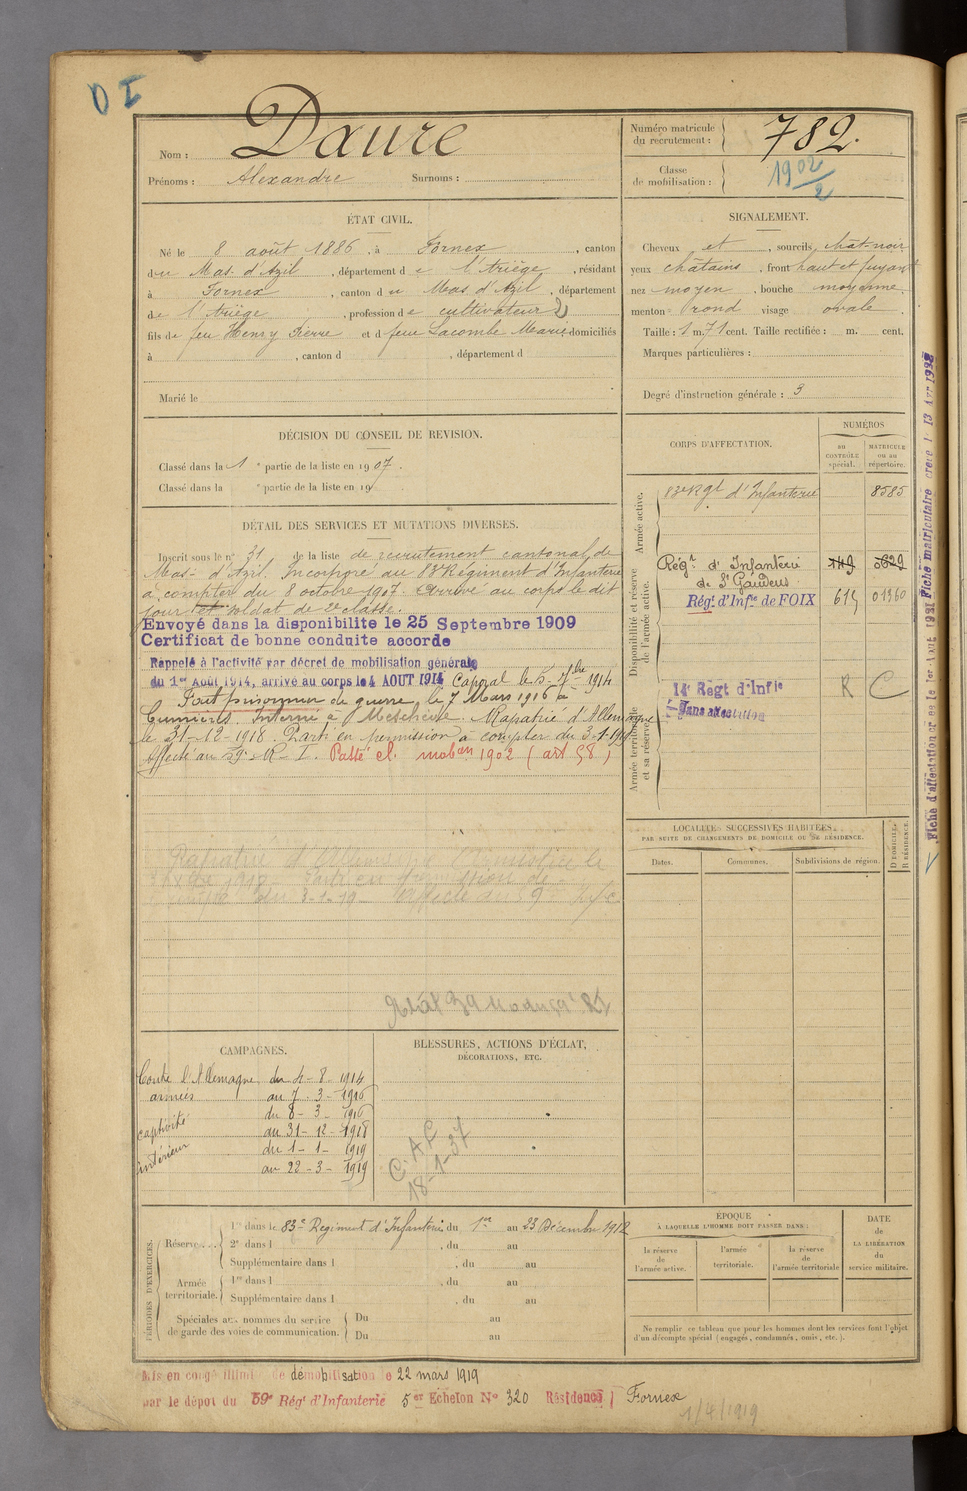 D I
Nom : Daure
Prénoms : Alexandre Surnoms :
Numéro matricule du recrutement : 782.
Classe de mobilisation : 1902/2
ÉTAT CIVIL.
Né le 8 août 1886, à Fornex, canton
du Mas-d'Azil, département de l'Ariège, résidant
à Fornex, canton du Mas d'Azil, département
de l'Ariège, profession de cultivateur
fils de feu Henry Pierre et de feu Lacombe Marie, domiciliés
à , canton d , département d
Marié le
SIGNALEMENT.
Cheveux et , sourcils chât-noir
yeux châtains, front haut et fuyant
nez moyen, bouche moyenne,
menton rond visage ovale.
Taille : 1 m. 71 cent. Taille rectifiée : m. cent.
Marques particulières :
Degré d'instruction générale : 3
DÉCISION DU CONSEIL DE REVISION.
Classé dans la 1 e partie de la liste en 1907.
Classé dans la e partie de la liste en 19
DÉTAIL DES SERVICES ET MUTATIONS DIVERSES.
Inscrit sous le n° 31 de la liste de recrutement cantonal de
Mas-d'Azil. Incorporé au 83e Régiment d'Infanterie
à compter du 8 octobre 1907. Arrivé au corps le dit
jour et soldat de 2e classe.
Envoyé dans la disponibilite le 25 Septembre 1909
Certificat de bonne conduite accorde
Rappelé à l'activité par décret de mobilisation générale
du 1er Août 1914, arrivé au corps le 4 AOUT 1914 Caporal le 5-7bre 1914
Fait prisonnier de guerre le 7 Mars 1916 à
Cumières. Interné à Meschede. Rapatrié d'Allemagne
le 31-12-1918. Parti en permission à compter du 3-1-1919
Affecté au 59e R. I. Passé cl. mobon 1902 (art 58)
Rapatrié d'Allemagne le
Parti en permission de
du 3-1-19 Affecté au 59e Infie
CORPS D'AFFECTATION.
NUMÉROS
au CONTRÔLE spécial.
MATRICULE ou au répertoire.
Armée active.
83e Rgt d'Infanterie 8585
Disponibilité et réserve de l'armée active.
Régt d'Infanterie de St Gaudens
Régt d'Infie de FOIX 615 01360
Armée territoriale et sa réserve.
14e Régt d'Infie R C
Sans affectation
Fiche d'affectation créée le 1er Août 1931 Fiche matriculaire créée l
LOCALITÉS SUCCESSIVES HABITÉES
PAR SUITE DE CHANGEMENTS DE DOMICILE OU DE RÉSIDENCE.
Dates. Communes. Subdivisions de région.
D DOMICILE. R RÉSIDENCE.
CAMPAGNES.
Contre l'Allemagne du 4-8-1914
armées au 7-3-1916
du 8-3-1916
captivité au 31-12-1918
du 1-1-1919
intérieur au 22-3-1919
BLESSURES, ACTIONS D'ÉCLAT,
DÉCORATIONS, ETC.
C. A. L
18-1-37
PÉRIODES D'EXERCICES.
Réserve... 1re dans le 83e Régiment d'Infanterie, du 1er au 23 Décembre 1912
2e dans l , du au
Supplémentaire dans l , du au
Armée territoriale. 1re dans l , du au
Supplémentaire dans l , du au
Spéciales aux hommes du service de garde des voies de communication. Du au
Du au
ÉPOQUE
À LAQUELLE L'HOMME DOIT PASSER DANS :
la réserve de l'armée active.
l'armée territoriale.
la réserve de l'armée territoriale
DATE de LA LIBÉRATION du service militaire.
Ne remplir ce tableau que pour les hommes dont les services font l'objet
d'un décompte spécial (engagés, condamnés, omis, etc.).
Mis en congé illimité de démobilisation le 22 mars 1919
par le dépôt du 59e Régt d'Infanterie 5er Echelon No 320 Résidence Fornex
1/4/1919